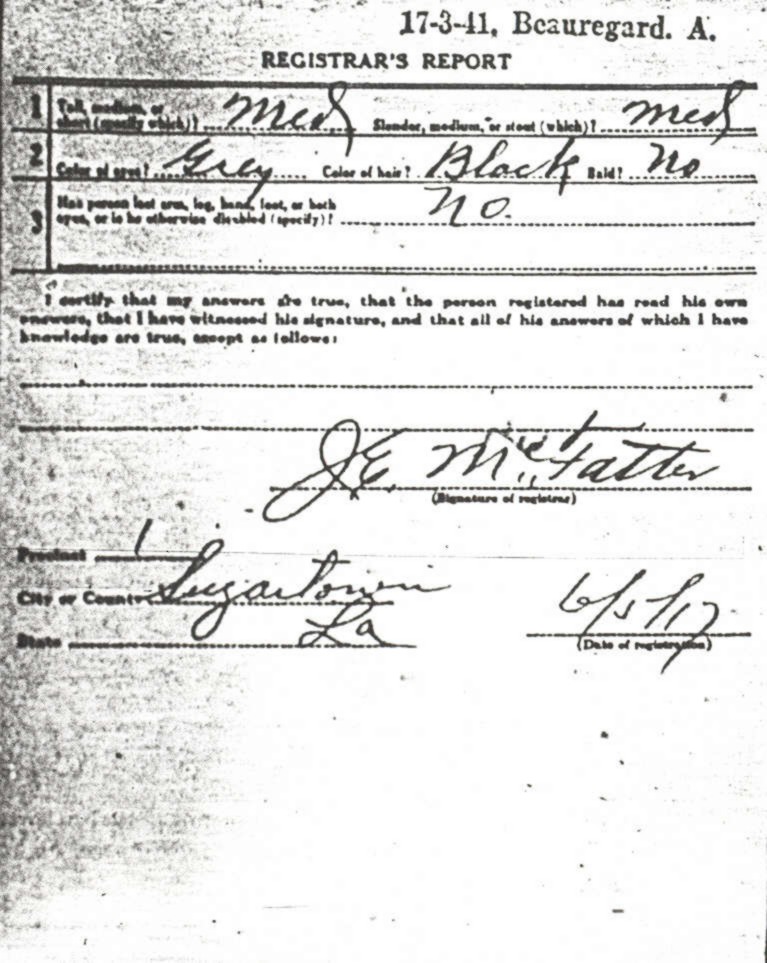 17-3-41, Beauregard. A.
REGISTRAR'S REPORT
1 Tall, medium, or short (specify which)? Med Slender, medium, or stout (which)? med
2 Color of eyes? Grey Color of hair? Black Bald? No
3 Has person lost arm, leg, hand, foot, or both
eyes, or is he otherwise disabled (specify)? No.
I certify that my answers are true, that the person registered has read his own
answers, that I have witnessed his signature, and that all of his answers of which I have
knowledge are true, except as follows:
J.E. McFatter
(Signature of registrar)
Precinct 1
City or County Sugartown
State La 6/5/17
(Date of registration)